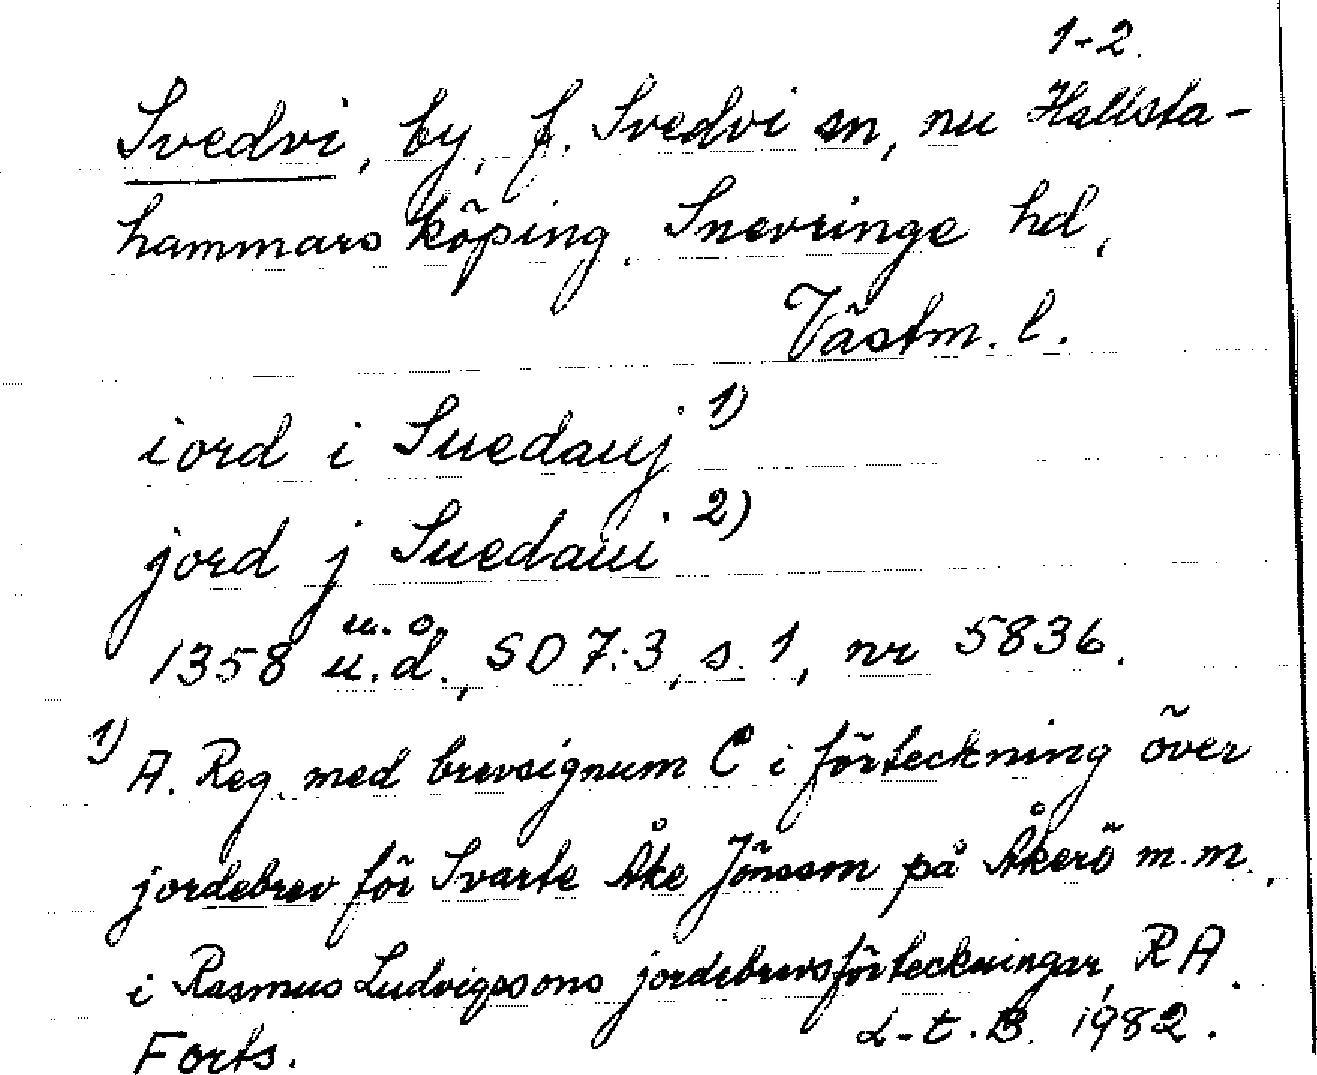 1-2.
Svedvi, by, f. Svedvi sn, nu Hallsta-
hammars köping, Snevringe hd,
Västm. l.
iord i Suedauj 1)
jord j Suedaui 2)
1358 u.o. u.d., SD 7:3, s. 1, nr 5836.
1) A. Reg. med brevsignum C i förteckning över
jordebrev för Svarte Åke Jönsson på Åkerö m.m.
i Rasmus Ludvigssons jordebrevsförteckningar, RA.
Forts. L-t.B. 1982.